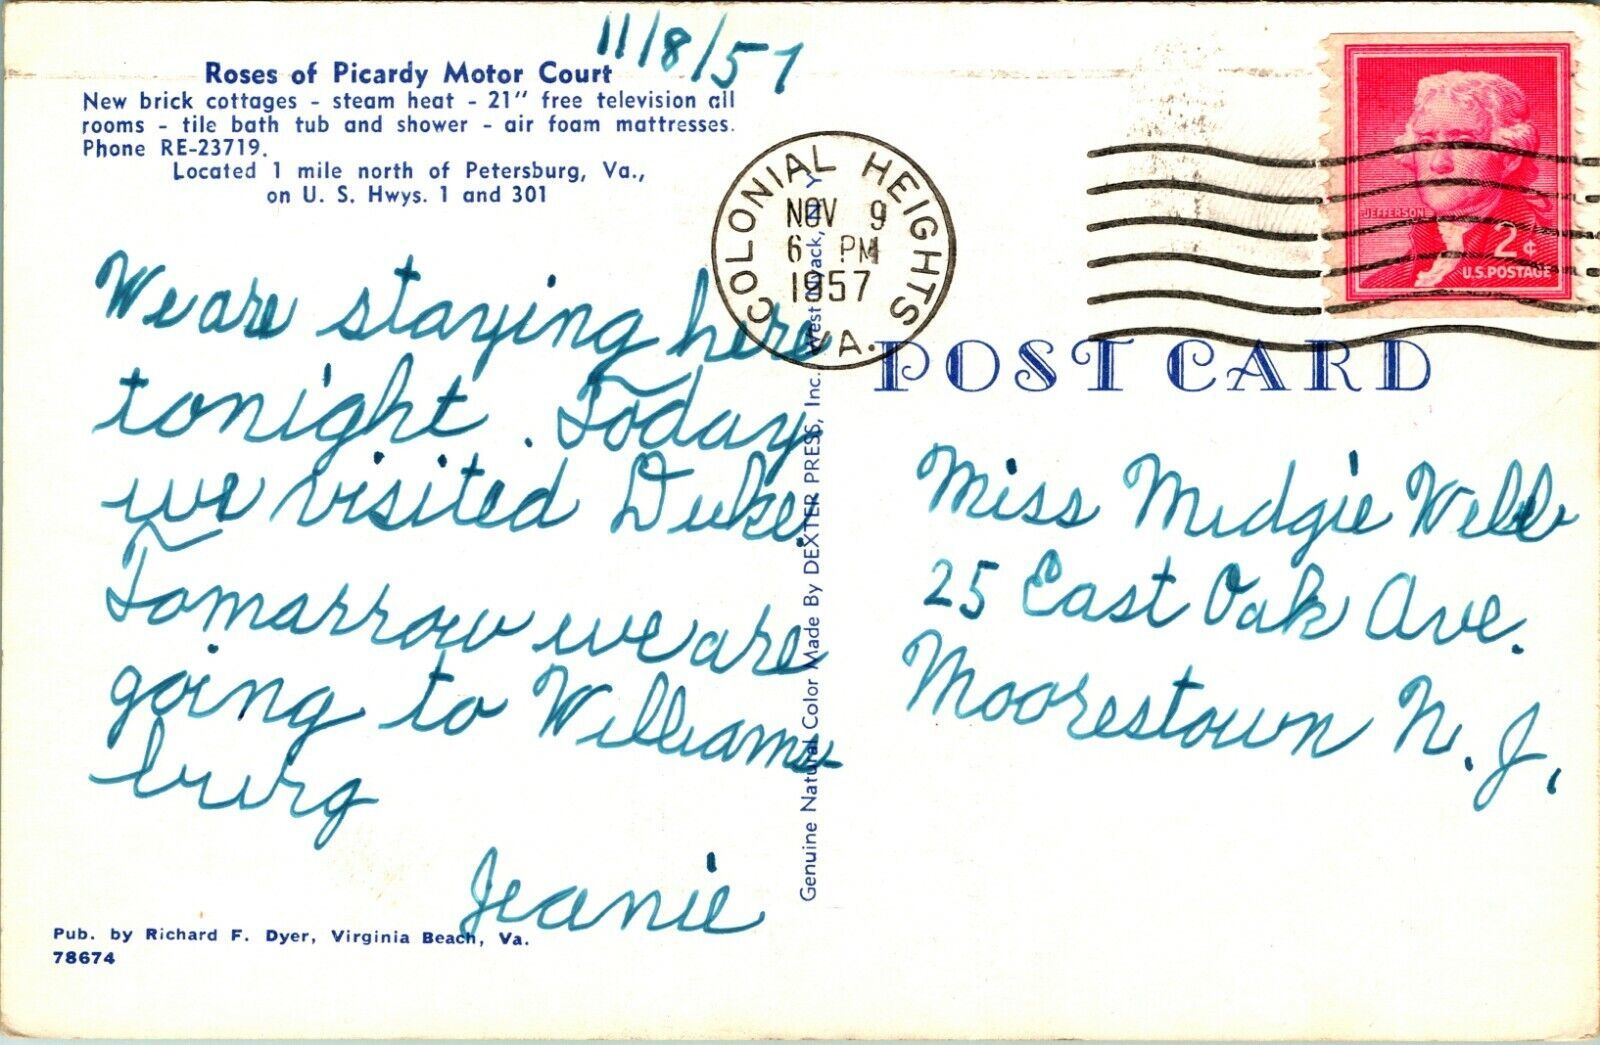 11/8/57
Roses of Picardy Motor Court
New brick cottages - steam heat - 21" free television all
rooms - tile bath tub and shower - air foam mattresses.
Phone RE-23719.
Located 1 mile north of Petersburg, Va.,
on U. S. Hwys. 1 and 301
We are staying here
tonight. Today
we visited Duke.
Tomarrow we are
going to Williams-
burg
Jeanie
Pub. by Richard F. Dyer, Virginia Beach, Va.
78674
Genuine Natural Color Made By DEXTER PRESS, Inc. West Nyack, N Y
COLONIAL HEIGHTS
NOV 9
6 PM
1957
VA.
JEFFERSON
2¢
U.S. POSTAGE
POST CARD
Miss Midgie Webb
25 East Oak Ave.
Moorestown N. J.